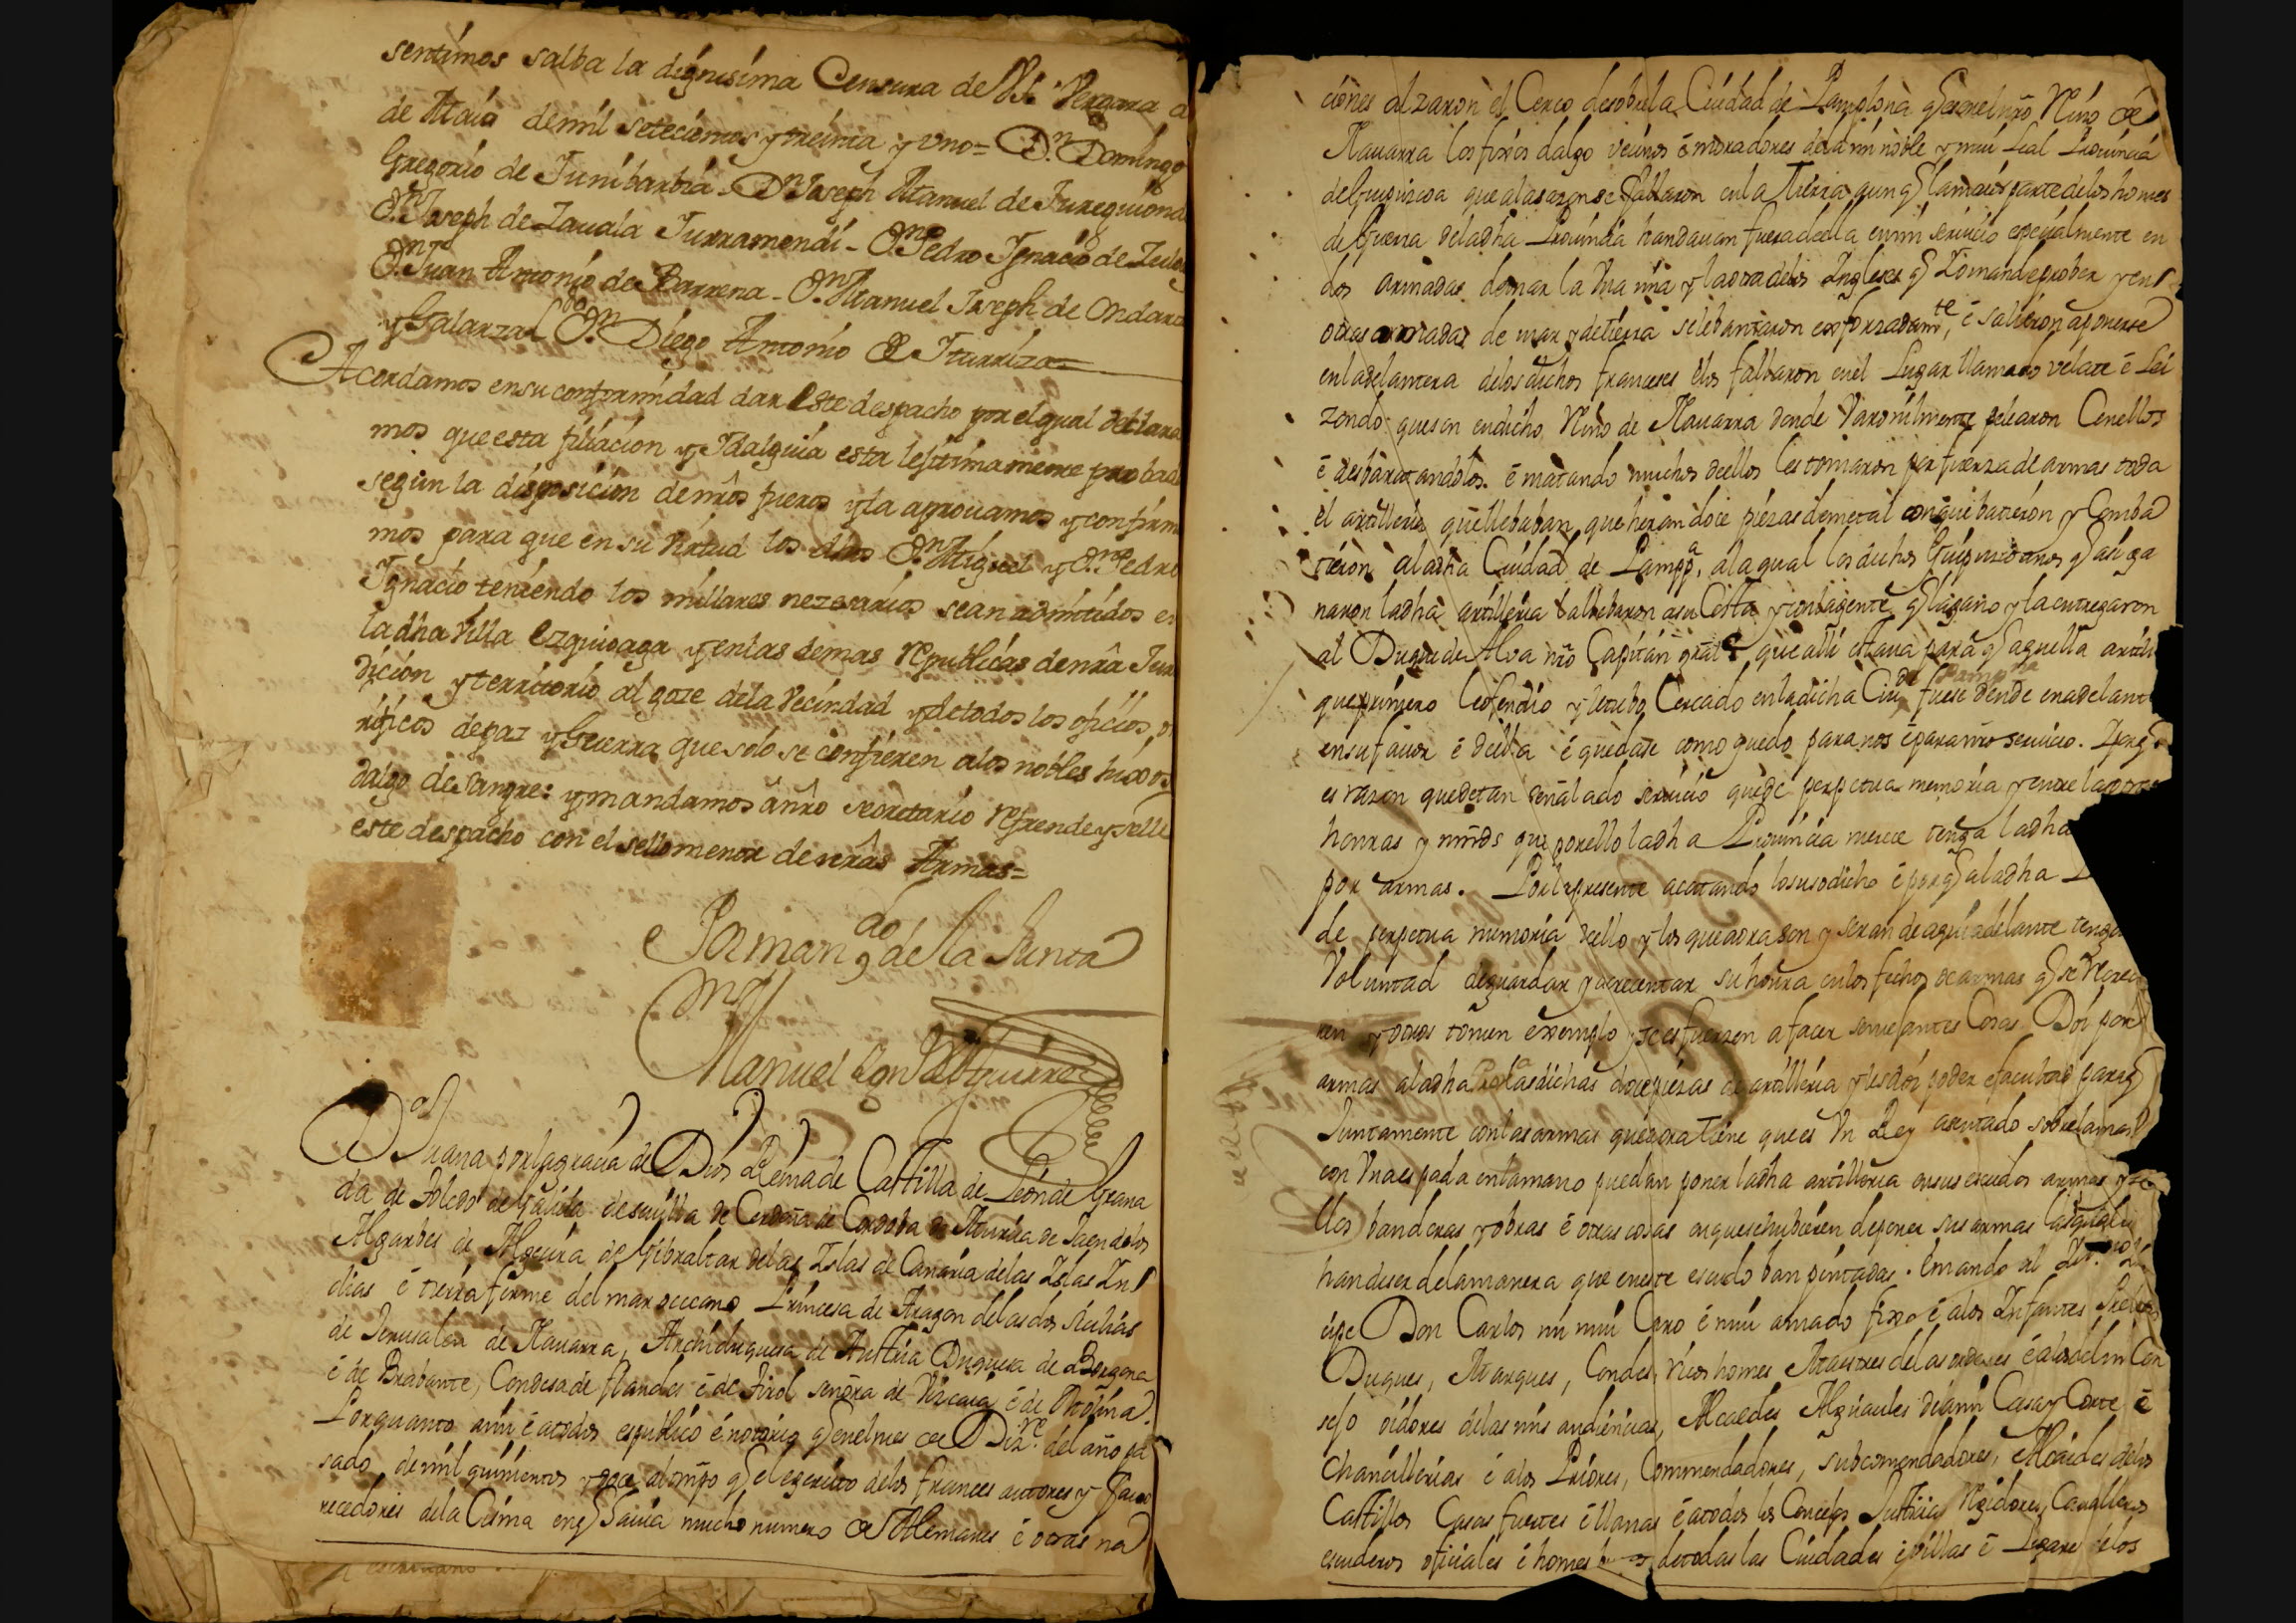 sentimos salba la dignisima Censura de VS. Vergara
de Maio de mil setecientos y treinta y uno = Dn. Domingo
Gregorio de Junibarbia - Dn Joseph Manuel de
Dn. Joseph de Zauala Jurramendi - Dn. Pedro Ignacio de
Dn. Juan Antonio de Barrena - Dn. Manuel Joseph de Ondar
y Galarza Dn. Diego Antonio de Iturriza =
Acordamos en su conformidad dar este despacho por el qual declara
mos que esta filiacion y Idalguia esta lejitimamente probad
segun la disposicion de nrôs fueros y la aprouamos y confirm
mos para que en su virtud los dhos Dn. Miguel y Dn. Pedro
Ignacio teniendo los millares nezesarios sean admitidos e
la dha Villa Ezquioaga y en las demas republicas de nrâ Jur
dicion y territorio al goze de la Vecindad y de todos los oficios
rificos de paz y Guerra que solo se confieren a los nobles hixos
dalgo de sangre: y mandamos â nrô secretario refrende y selle
este despacho con el sello menor de nrâs Armas =
Por mando. de la Junta
Manuel
Da Juana por la gracia de Dios Reina de Castilla de Leon de Grana
da de Toledo de Galicia de sevilla de Cerdeña de Cordoba de Murcia de Jaen de los
Algarbes de Algecira de Gibraltar de las Islas de Canaria de las Islas In
dias é tierra firme del mar occeano Princesa de Aragon de las dos sicilias
de Jerusalen de Nauarra, Archiduquesa de Austria Duquesa de Borgona
é de Brabante, Condesa de flandes é de Tirol señora de Vizcaia é de Molina.
Por quanto a mi é a todos es publico é notorio q en el mes de Dizre. del año pa
sado de mil quinientos y doce al tiempo q el egercito de los franceses autores y fauo
recedores de la Cisma en q hauia mucho numero de Alemanes é otras na
ciones alzaron el Cerco de sobre la Ciudad de Pamplona q es en el nrô Rno de
Nauarra los fixos dalgo vecinos é moradores de la mi noble y mui Leal Prouincia
de Guipuzcoa que a la sazon se fallaron en la Tierra aun q la maior parte de los homes
de Guerra de la dha Prouincia handauan fuera de ella en mi seruicio especialmente en
dos armadas de mar la Vna mia y la otra de los Ingleses q y en
otras armadas de mar y de tierra se lebantaron esforzadamte. é salieron a ponerse
en la delantera de los dichos franceses é los fallaron en el Lugar llamado velate é Lei
zondo que son en dicho Rno de Nauarra donde Varonilmente pelearon Con ellos
é desbaratandolos é matando muchos de ellos les tomaron por fuerza de armas toda
el artilleria que llebaban, que heran doce piezas de metal con que batieron y Comba
tieron a la dha Ciudad de Pampa. a la qual los dichos Guipuzcoanos q asi ga
naron la dha artilleria la llebaron a su Costa y con la gente q la gano y la entregaron
al Duque de Alva nrô Capitan gral que alli estaua para q aquella artille
que primero le ofendio y le tubo Cercado en la dicha Ciud de Pampna fuese dende en adelante
en su fauor é de ella é quedase como quedo para nos é para nrô seruicio. Y porq
es razon que de tan señalado seruicio quede perpetua memoria y entre las otras
honras y que por ello la dha Prouincia merece tenga la dha
por armas. Por la presente acatando lo susodicho é porq a la dha
de perpetua memoria de ello y los que aora son y seran de aqui adelante tenga
Voluntad de guardar y acrecentar su honra en los fechos de armas q se
y otros tomen exemplo y se esfuerzen a facer semejantes Cosas Doi por
armas a la dha Proa las dichas doce piezas de artilleria y les doi poder é facultad para q
Juntamente con las armas que aora tiene que es Vn Rey asentado sobre la mar
con Vna espada en la mano puedan poner la dha artilleria en sus escudos armas y se
llos banderas y obras é otras cosas en que se hubieren de poner sus armas las quales
han de ser de la manera que en este escudo ban pintadas. E mando al
cipe Don Carlos mi mui Caro é mui amado fixo é a los Infantes Prelados
Duques, Marques, Condes, ricos homes Maestres de las ordenes é a los del mi Con
sejo oidores de las mis audiencias, Alcaldes Alguaciles de la mi Casa y Corte é
Chancillerias é a los Priores, Commendadores, subcomendadores, Alcaides de los
Castillos Casas fuertes é llanas é a todos los Concejos Justicias Regidores, Caualleros
escuderos oficiales é homes de todas las Ciudades é villas é Lugares de los